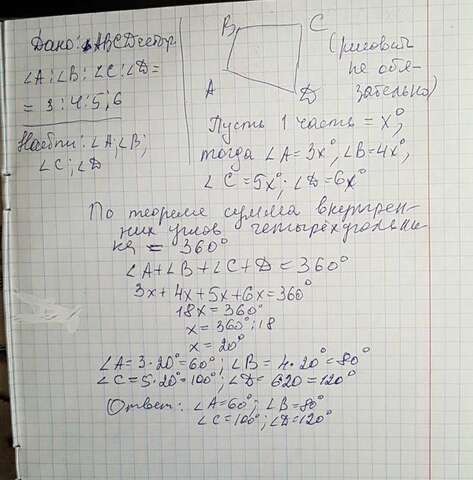 Дано: ABCD четыр
∠A:∠B:∠C:∠D=
= 3:4:5:6
Найти: ∠A;∠B;
∠C;∠D
B C
A D
(рисовать
не обя-
зательно)
Пусть 1 часть = x°,
тогда ∠A=3x°; ∠B=4x°;
∠C=5x°; ∠D=6x°
По теореме сумма внутрен-
них углов четырёхугольни-
ка = 360°
∠A+∠B+∠C+∠D=360°
3x+4x+5x+6x=360°
18x=360°
x=360°:18
x=20°
∠A=3·20°=60°; ∠B=4·20°=80°
∠C=5·20°=100°; ∠D=620=120°
Ответ: ∠A=60°; ∠B=80°
∠C=100°; ∠D=120°